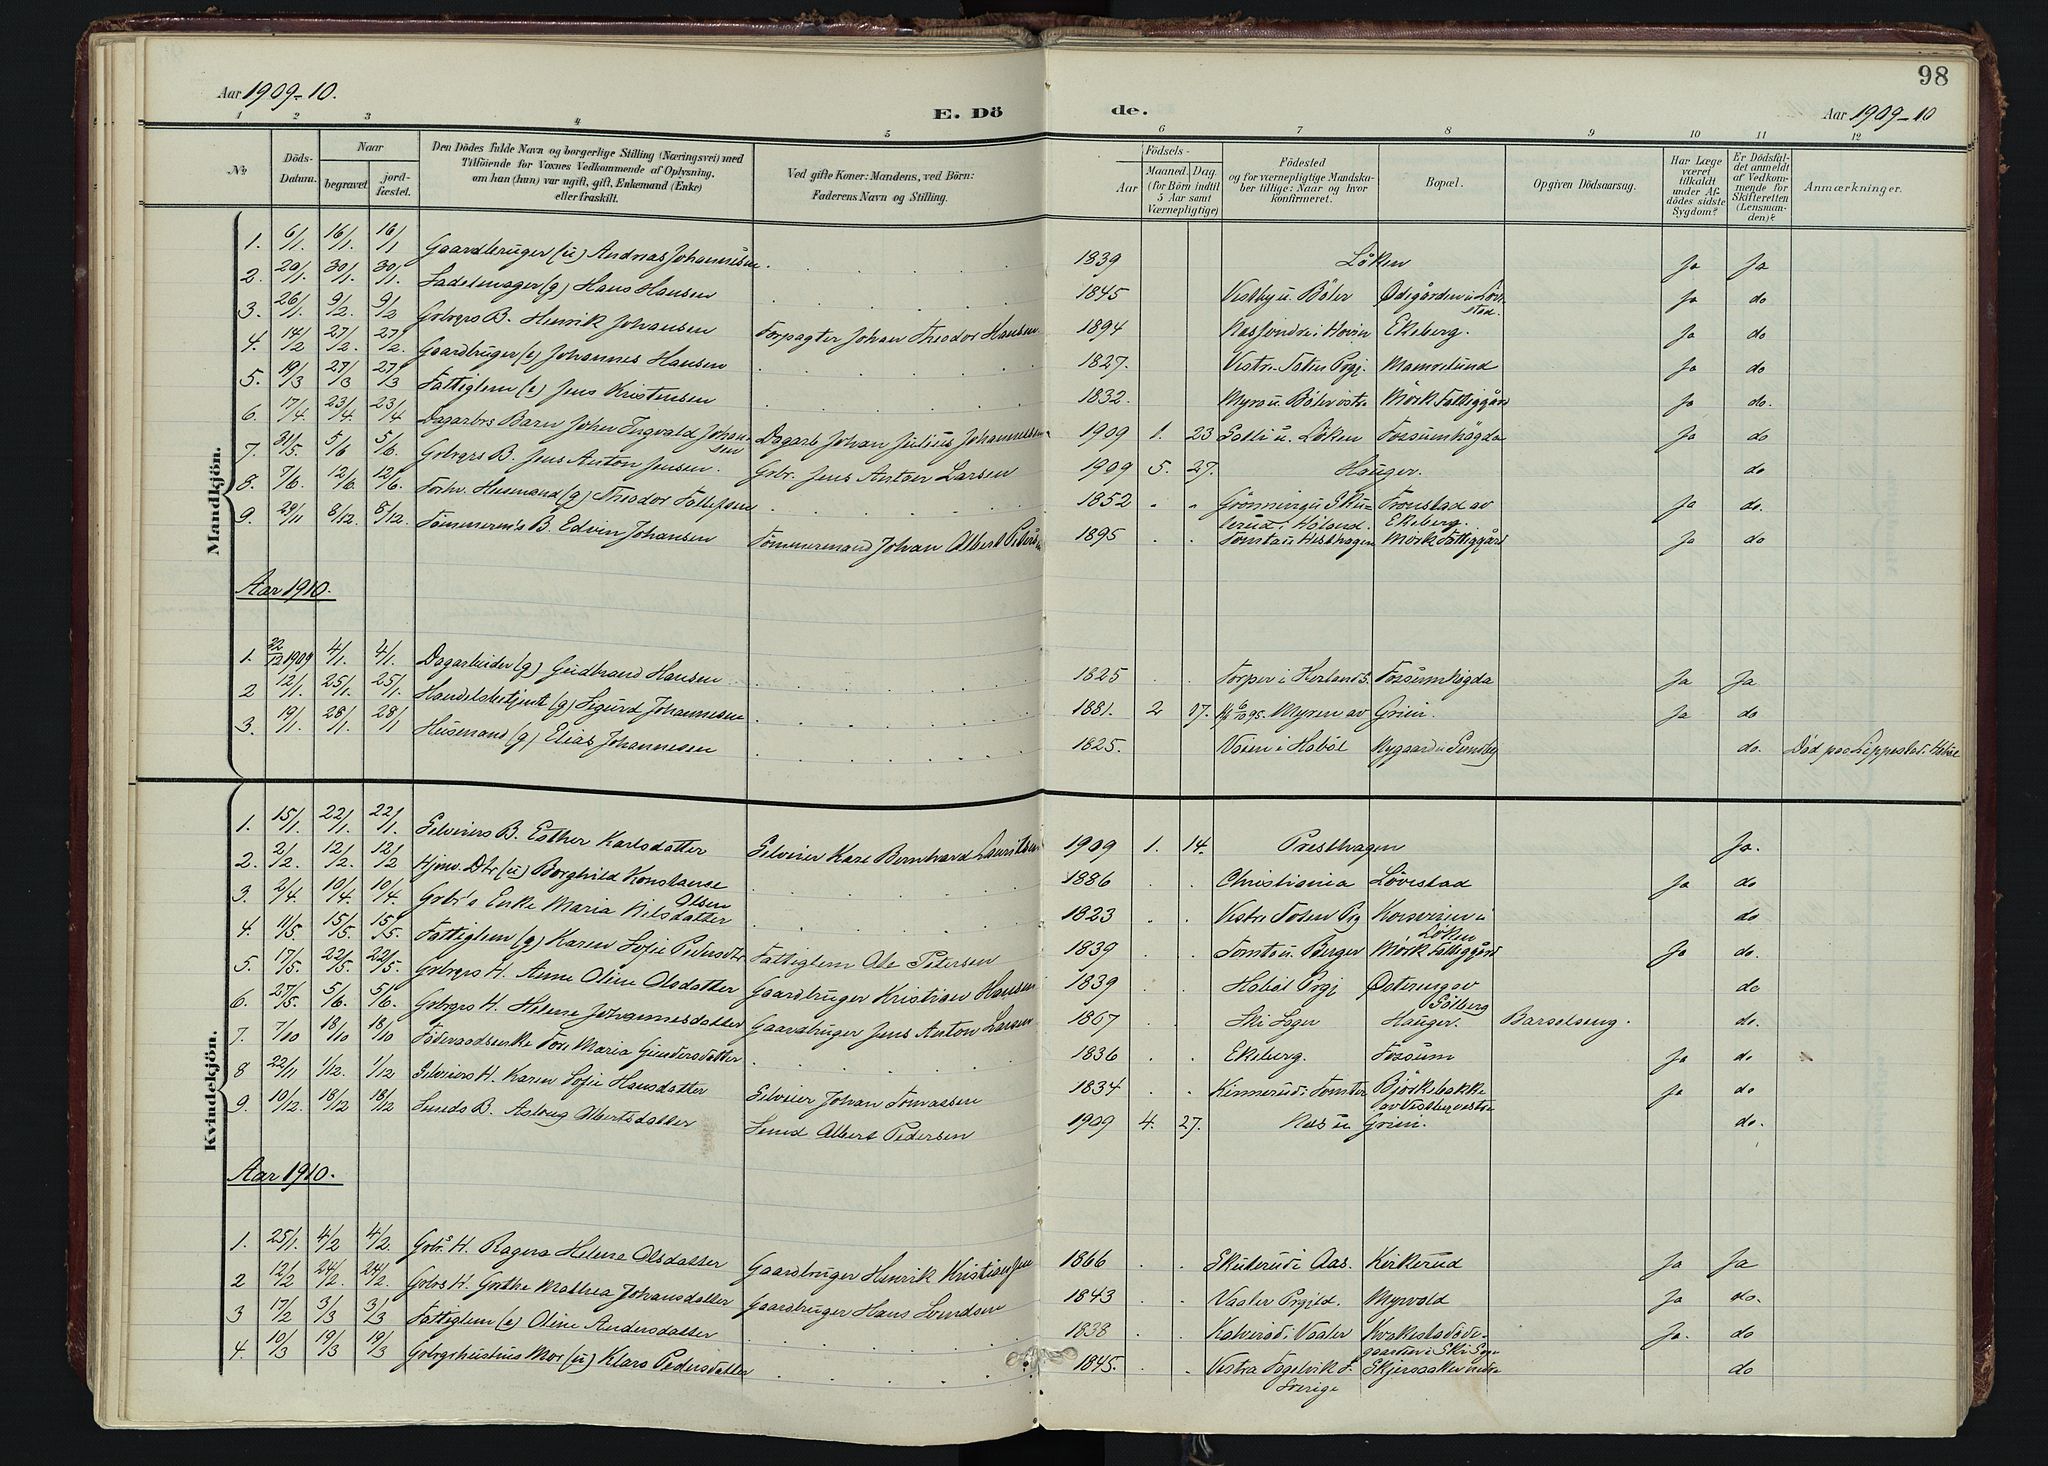 98
Aar 1909-10.
E. Dö de.
Aar 1909-10
1 2 3 4 5 6 7 8 9 10 11 12
No
Döds-Datum.
Naar
begravet.
jord-fæstet.
Den Dödes fulde Navn og borgerlige Stilling (Næringsvei) med
Tilföiende for Voxnes Vedkommende af Oplysning,
om han (hun) var ugift, gift, Enkemand (Enke)
eller fraskilt.
Ved gifte Koner: Mandens, ved Börn:
Faderens Navn og Stilling.
Födsels-
Aar
Maaned. Dag.
(for Börn indtil
5 Aar samt
Værnepligtige)
Födested
og for værnepligtige Mandska-
ber tillige: Naar og hvor
konfirmeret.
Bopæl.
Opgiven Dödsaarsag.
Har Læge
været
tilkaldt
under Af-
dödes sidste
Sygdom?
Er Dödsfal-
det anmeldt
af Vedkom-
mende for
Skifteretten
(Lensman-
den)?
Anmærkninger.
Mandkjön.
1. 6/1. 16/1. 16/1 Gaardbruger (u) Andreas Johannesen 1839 Löken Ja Ja
2. 20/1. 30/1. 30/1. Sadelmager (g) Hans Hansen 1845 Vestby u. Bøler Ødegården u. Ja do
3. 26/1. 9/2. 9/2 Grbrgrs B. Henrik Johansen Forpagter Johan Theodor Hansen 1894 i Hovin Ekeberg. Ja do
4. 14/2 27/2. 27/2. Gaardbruger (e) Johannes Hansen 1827. Vestre Toten Prgj. Mamrelund Ja do
5. 19/3 27/3 27/3 Fattiglem (e) Jens Kristensen 1832. Myra u. Böler vstr. Mörk Fattiggård Ja do.
6. 17/4 23/4 23/4 Dagarbrs Barn Johan Ingvald Johansen Dagarb. Johan Julius Johannesen 1909 1. 23 u. Löken Fossumhögda Ja do
7. 31/5 5/6 5/6. Grbrgrs B. Jens Anton Jensen. Grbr. Jens Anton Larsen 1909 5. 27. Hauger. do
8. 7/6. 12/6. 12/6. Forhv. Husmand (g) Theodor Tollefsen 1852 Grönning u Skulerud i Höland. Tronstad av Ekeberg. Ja do.
9. 29/11 8/12. 8/12. Tömmerm's B. Edvin Johansen Tömmermand Johan Albert 1895 Tomta u. Mörk Fattiggård Ja do
Aar 1910.
1. 22/12 1909 4/1. 4/1. Dagarbeider (g) Gudbrand Hansen 1825 Torper i Herland S. Fossumhögda Ja Ja
2 12/1. 25/1. 25/1. Handelsbetjent (g) Sigurd Johannesen 1881. 2 17. Myren av Grini. Ja do
3. 19/1. 28/1. 28/1 Husmand (g) Elias Johannesen 1825. i Hobøl Nygaard u. Sundby do. Död paa Lippestad i Hobøl
Kvindekjön.
1. 15/1. 22/1. 22/1. Selveiers B. Esther Karlsdatter Selveier Karl Bernhard Lauritsen 1909 1. 14. Presthagen Ja.
2. 2/2. 12/2. 12/2 Hjmv. Dtr (u) Borghild Konstanse Olsen 1886 Christiania Lövestad Ja do
3. 2/4. 10/4. 10/4. Grbr's Enke Maria Nilsdatter 1823 Vestre Toten Prg Korsveien u Löken do
4. 11/5 15/5. 15/5. Fattiglem (g) Karen Sofie Pedersdtr Fattiglem Ole Petersen 1839 Tomta u. Berger Mörk Fattiggård Ja do.
5. 17/5. 22/5. 22/5. Grbrgrs H. Anne Oline Olsdatter Gaardbruger Kristian Hansen 1839 Hobøl Prgj Østereng av Solberg do
6. 27/5. 5/6. 5/6. Grbrgrs H. Helene Johannesdatter Gaardbruger Jens Anton Larsen 1867 Ski Sogn Hauger. Barselseng. do.
7. 7/10 18/10 18/10 Föderaadsenke Tore Maria Gundersdatter 1836 Ekeberg. Fossum Ja do
8 22/11 1/12. 1/12 Selveiers H. Karen Sofie Hansdatter Selveier Johan Tomassen 1834 Kinnerud i Tomter Björkebakke av Vestby vestre Ja do
9. 10/12. 18/12 18/12 Smeds B. Aslaug Albertsdatter Smed Albert Pedersen 1909 4. 27. Næs u Grini. do.
Aar 1910.
1. 25/1. 4/2 4/2. Grbr.s H. Ragna Helene Olsdatter Gaardbruger Henrik Kristiansen 1866 Skuterud i Aas. Kirkerud Ja Ja
2 12/2 24/2. 24/2. Grbrs H. Grethe Mathea Johansdatter Gaardbruger Hans Svendsen 1843 Vaaler Prgjld. Myrvold Ja do.
3 17/2 3/3 3/3 Fattiglem (e) Oline Andersdatter 1838 Kalverød i Vaaler Kvakestadødegaarden i Ski Sogn Ja. do
4. 10/3 19/3 19/3 Grbrgrhustrus Mor (u) Klara Pedersdatter 1845. Vestra Fogelvik Sverige do